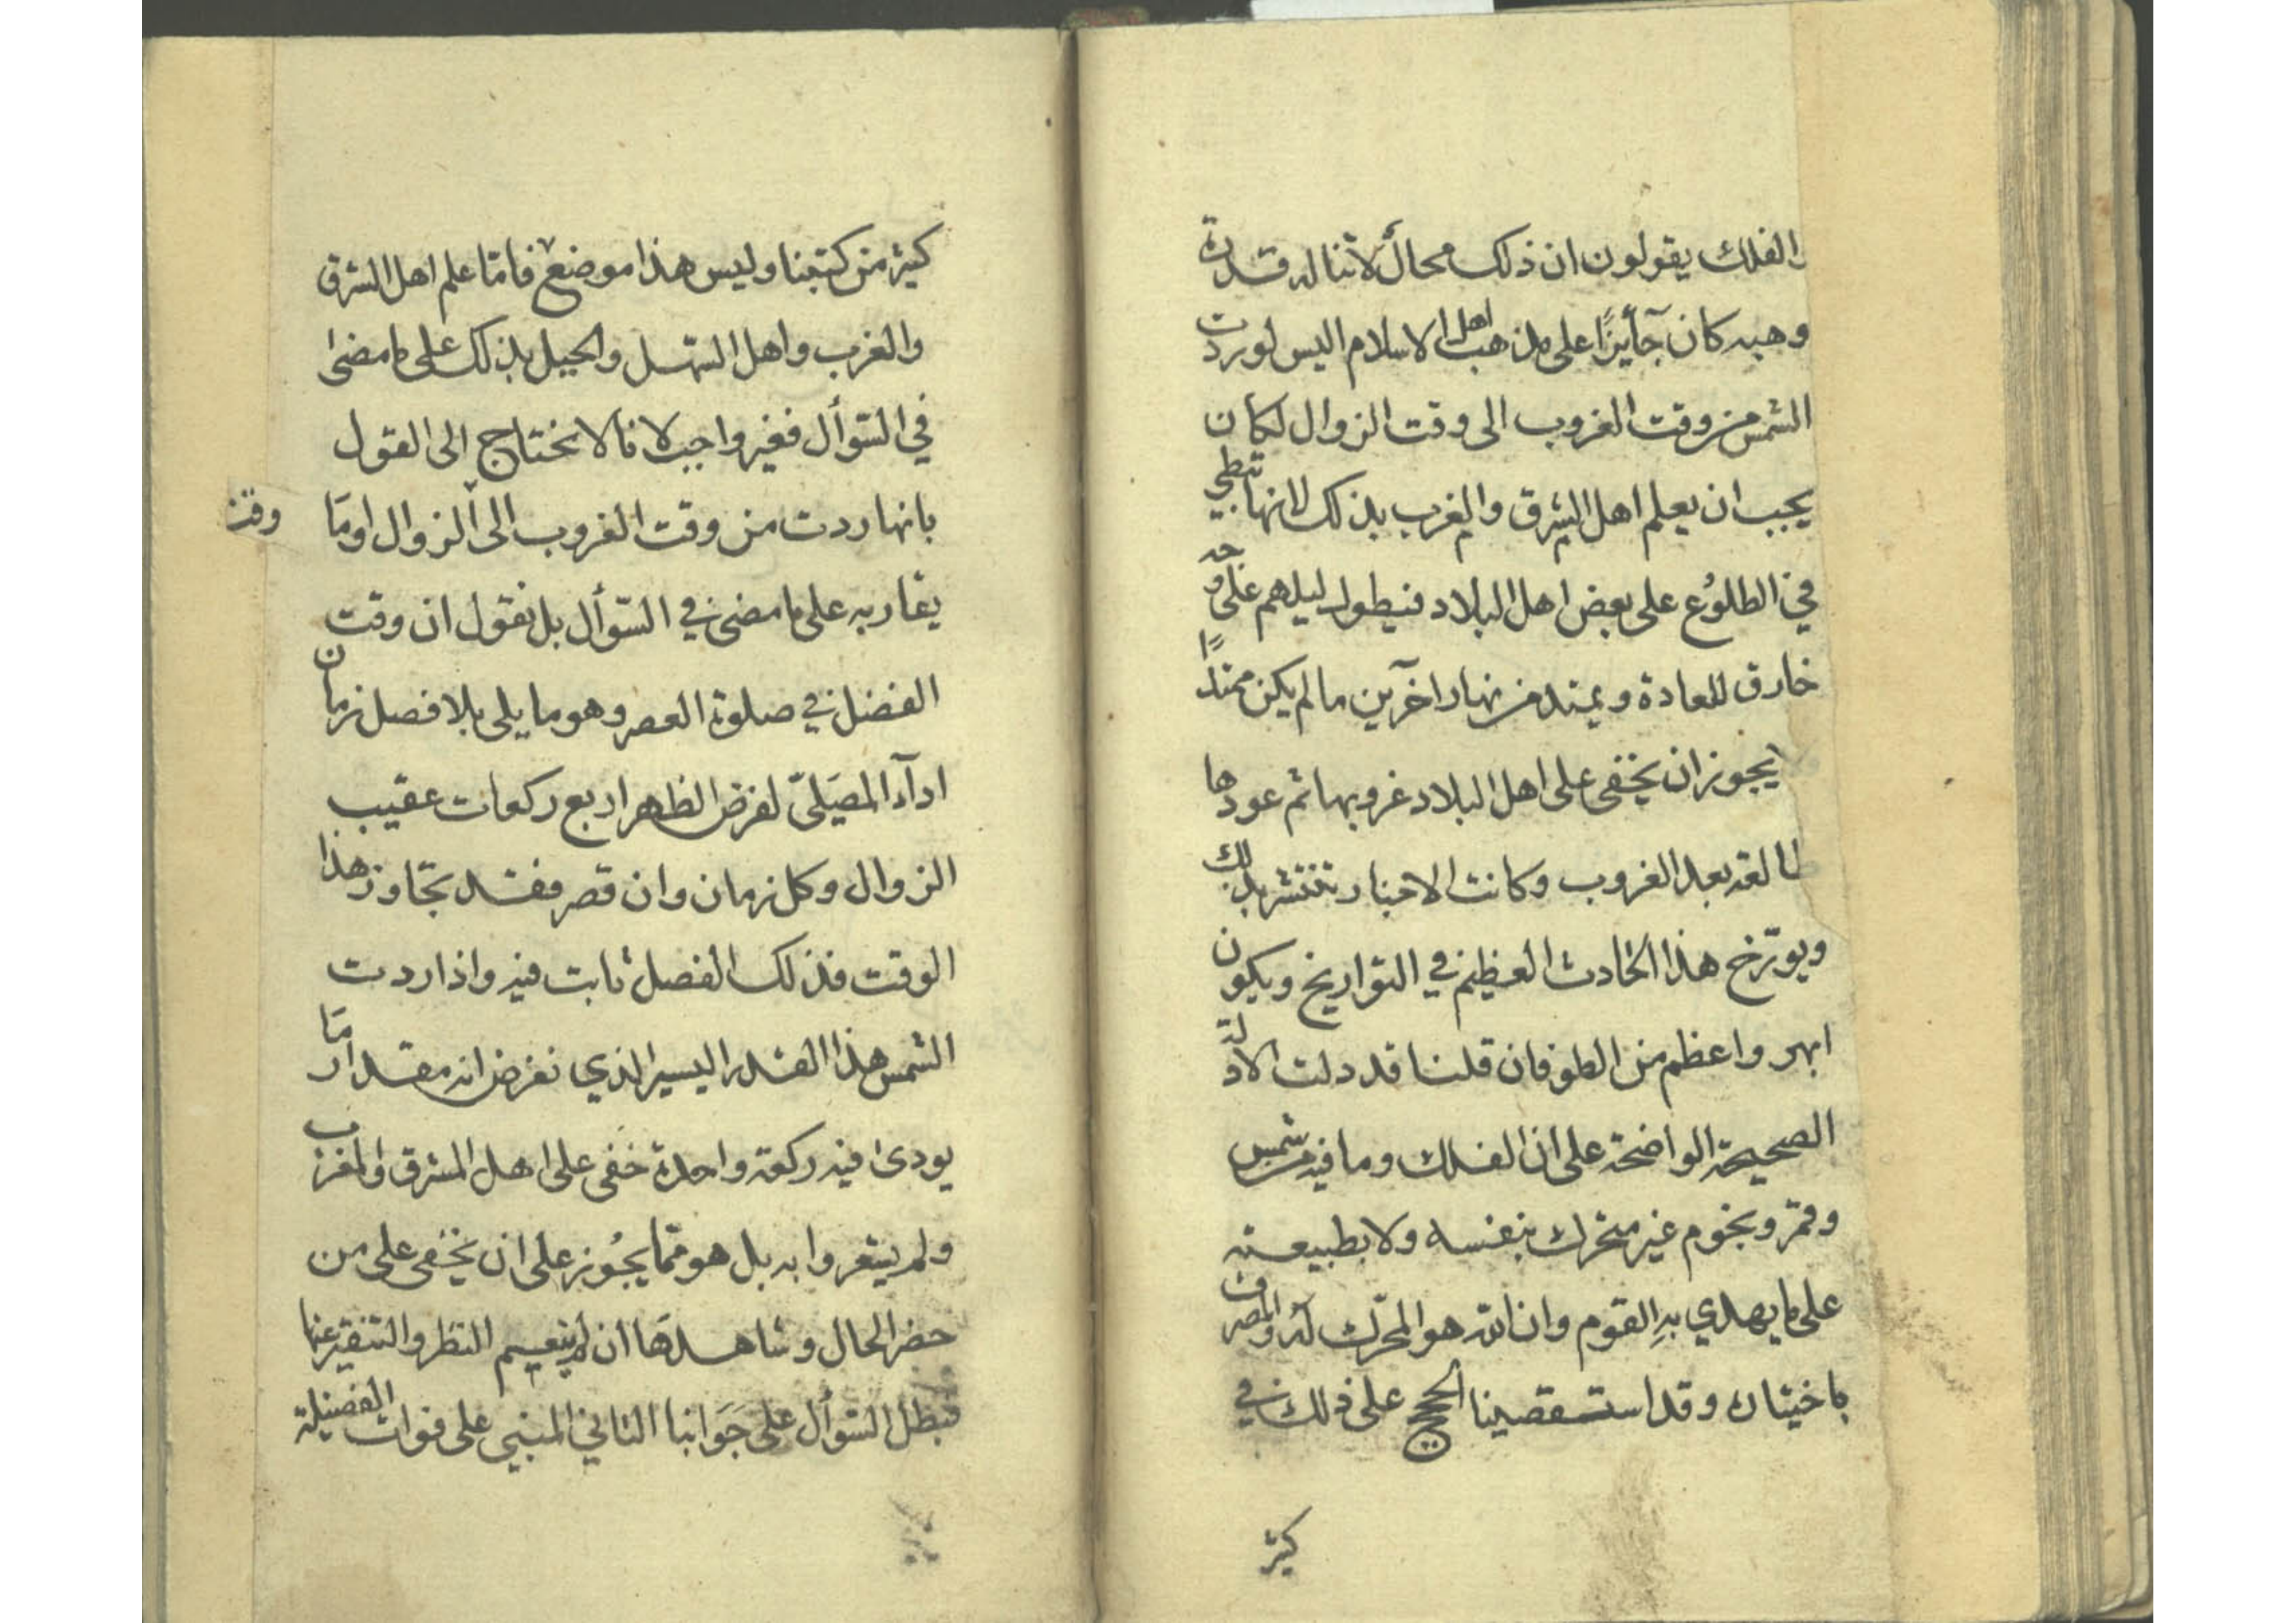 الفلك يقولون ان ذلك محال لا تناله قدرة
وهبه كان جآئزًا على مذهب اهل الاسلام اليس لو ردت
الشمس من وقت الغروب الى وقت الزوال لكان
يجب ان يعلم اهل الشرق والغرب بذلك لانها تبطي
في الطلوع على بعض اهل البلاد فيطول ليلهم على وجه
خارق للعادة ويمتد من نهار اخرين ما لم يكن ممتدًا
يجوز ان يخفى على اهل البلاد غروبها ثم عودها
طالعة بعد الغروب وكانت الاخبار تنتشر بذلك
ويورّخ هذا الحادث العظيم في التواريخ ويكون
ابهر واعظم من الطوفان قلنا قد دلت الادلة
الصحيحة الواضحة على ان الفلك وما فيه من شمس
وقمر ونجوم غير متحرك بنفسه ولا بطبيعته
على ما يهذي به القوم وان الله هو المحرّك له والمصرف
باختياره وقد استقصينا الحجج على ذلك في
كثير
كثير من كتبنا وليس هذا موضع فامّا علم اهل الشرق
والغرب واهل السهل والجبل بذلك على ما مضى
في السّوأل فغير واجب لانا لا نحتاج الى القول
بانها ردت من وقت الغروب الى الزوال او ما
وقت
يقاربه على ما مضى في السّوأل بل نقول ان وقت
الفضل في صلوة العصر وهو ما يلى بلا فصل زمان
ادآء المصَلّي لفرض الظهر اربع ركعات عقيب
الزوال وكل زمان وان قصر فقد تجاوز هذا
الوقت فذلك الفصل ثابت فيه واذا ردت
الشمس هذا القدر اليسير الذي نفرض انه مقدار ما
يودى فيه ركعة واحدة خفى على اهل المشرق والمغرب
ولم يشعروا به بل هو ممّا يجُوز على ان يخفى على من
حضر الحال وشاهدها ان لم ينعم النظر والتنقير عنها
فبطل السّوأل على جَوابنا الثاني المبني على فوات الفضيلة